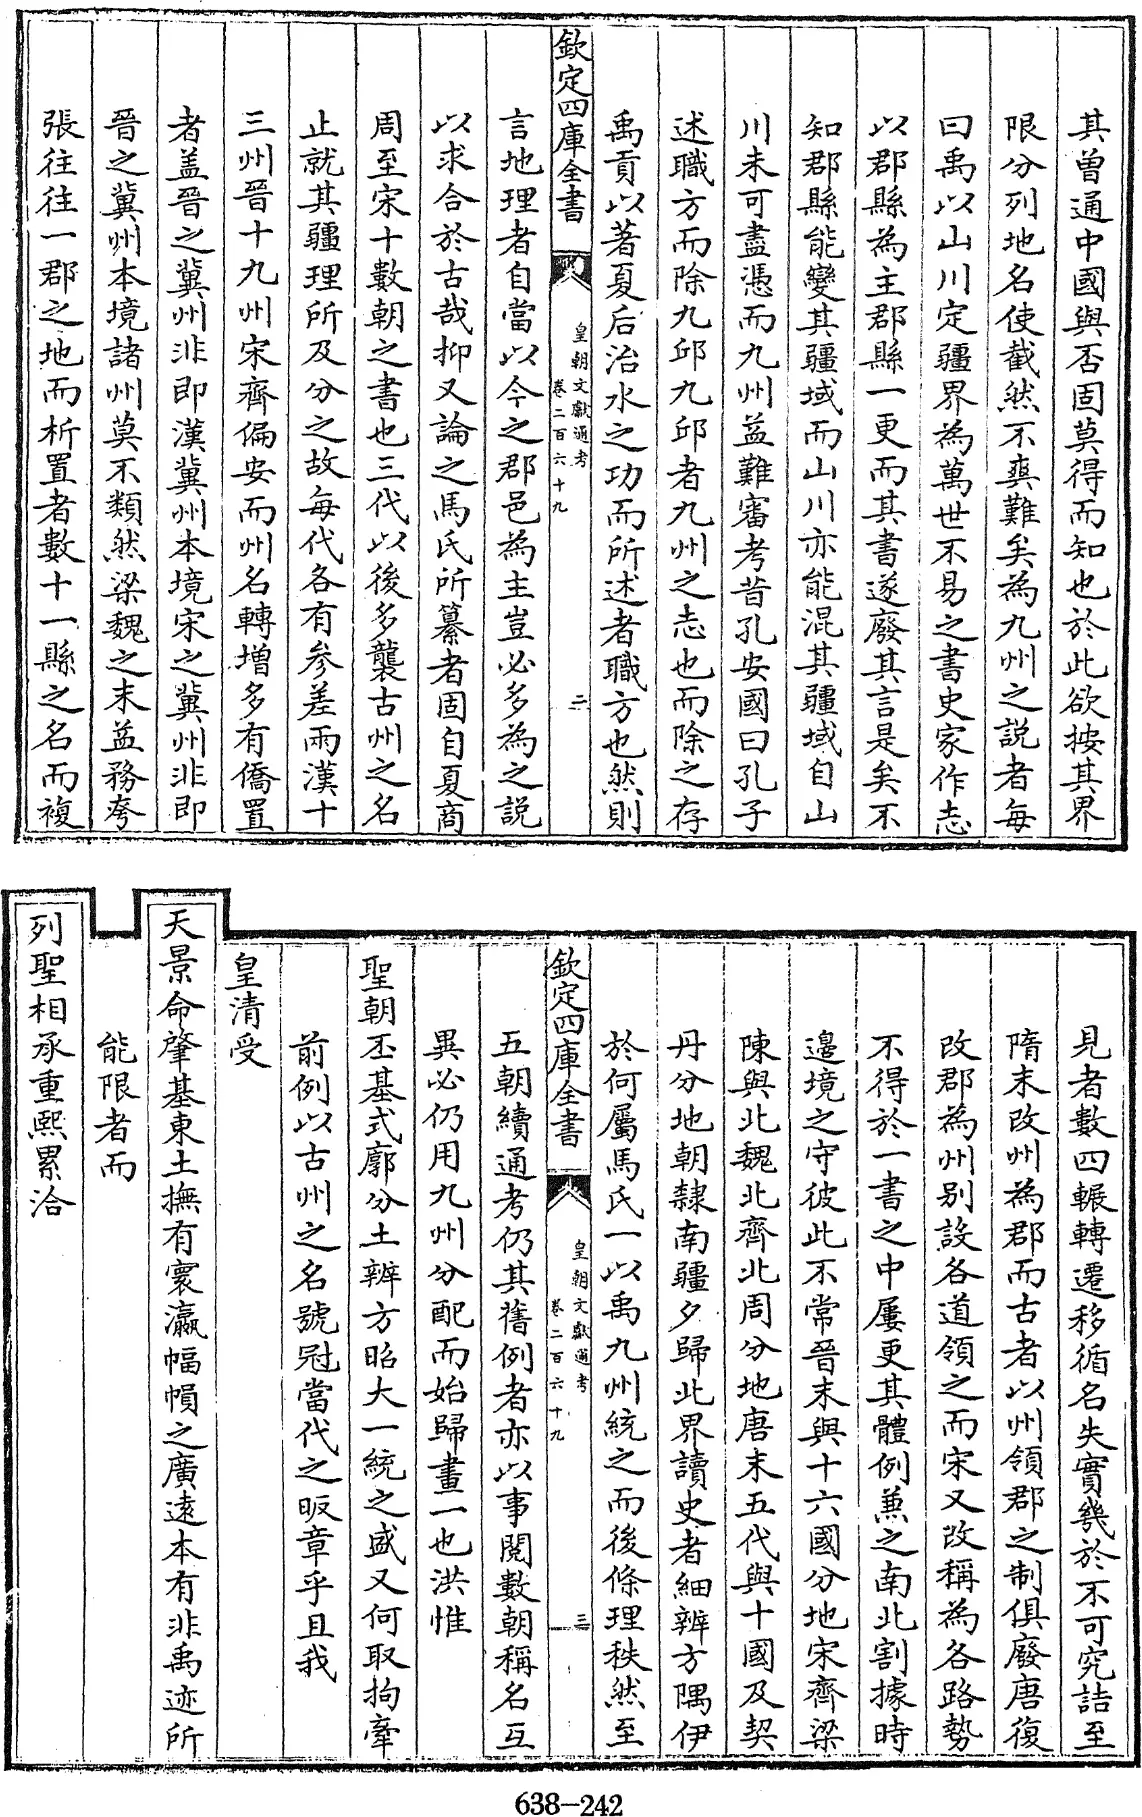 其曽通中國與否固莫得而知也於此欲按其界
限分列地名使截然不爽難矣為九州之説者每
曰禹以山川定疆界為萬世不易之書史家作志
以郡縣為主郡縣一更而其書遂廢其言是矣不
知郡縣能變其疆域而山川亦能混其疆域自山
川未可盡憑而九州益難審考昔孔安國曰孔子
述職方而除九邱九邱者九州之志也而除之存
禹貢以著夏后治水之功而所述者職方也然則
欽定四庫全書
皇朝文獻通考
卷二百六十九
二
言地理者自當以今之郡邑為主豈必多為之説
以求合於古哉抑又論之馬氏所纂者固自夏商
周至宋十數朝之書也三代以後多襲古州之名
止就其疆理所及分之故每代各有參差兩漢十
三州晉十九州宋齊偏安而州名轉增多有僑置
者盖晉之冀州非即漢冀州本境宋之冀州非即
晉之冀州本境諸州莫不類然梁魏之末益務夸
張往往一郡之地而析置者數十一縣之名而複
見者數四輾轉遷移循名失實幾於不可究詰至
隋末改州為郡而古者以州領郡之制俱廢唐復
改郡為州别設各道領之而宋又改稱為各路勢
不得於一書之中屢更其體例兼之南北割據時
邊境之守彼此不常晉末與十六國分地宋齊梁
陳與北魏北齊北周分地唐末五代與十國及契
丹分地朝隸南疆夕歸北界讀史者細辨方隅伊
於何屬馬氏一以禹九州統之而後條理秩然至
欽定四庫全書
皇朝文獻通考
卷二百六十九
三
五朝續通考仍其舊例者亦以事閱數朝稱名互
異必仍用九州分配而始歸畫一也洪惟
聖朝丕基式廓分土辨方昭大一統之盛又何取拘牽
前例以古州之名號冠當代之昄章乎且我
皇清受
天景命肇基東土撫有寰瀛幅帽之廣逺本有非禹迹所
能限者而
列聖相承重熙累洽
638-242